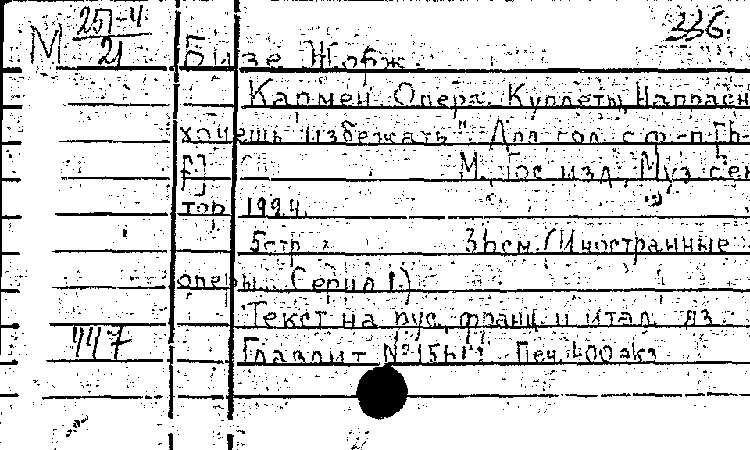 М 257-4/21
336.
Бизе Жорж.
Кармен. Опера. Куплеты „Напрасн
хочешь избежать". Для гол. с ф-п. [h-
f.] М., Гос. изд., Муз. сек
тор, 1924.
5 стр. 36 см. (Иностранные
оперы. Серия 1.)
Текст на рус., франц. и итал. яз.
447
Главлит № Печ. 400 экз.